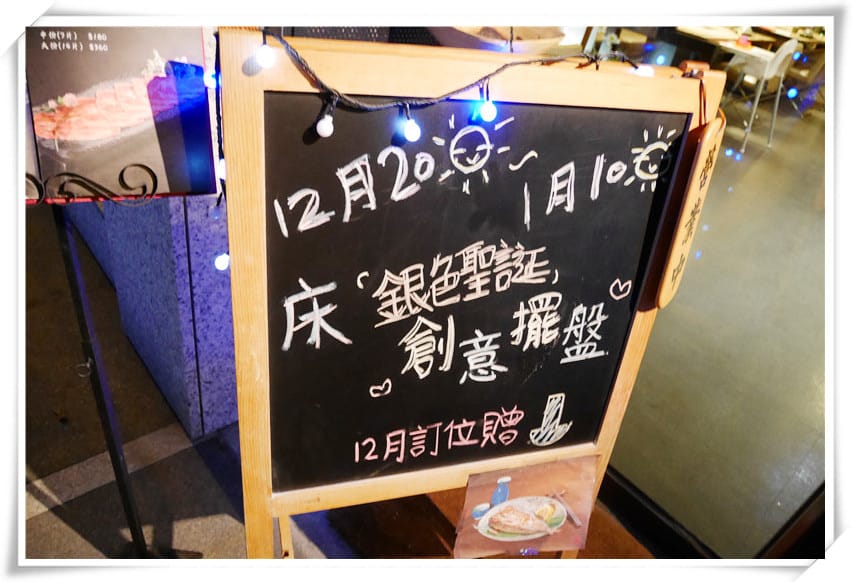 中份(7片) $180
大份(14片) $360
12月20日~1月10日
床「銀色聖誕」
創意擺盤
12月訂位贈
營業中